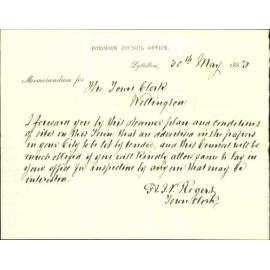 BOROUGH COUNCIL OFFICE,
Lyttelton, 30th May 188
Memorandum for
The Town Clerk
Wellington
I forward you by this steamer plan and conditions
of sites on this Town that are advertised in the papers
in your City to be let by tender, and this Council will be
much obliged if you will kindly allow same to lay in
your office for inspection by any one that may be
interested.
Rogers
Town Clerk